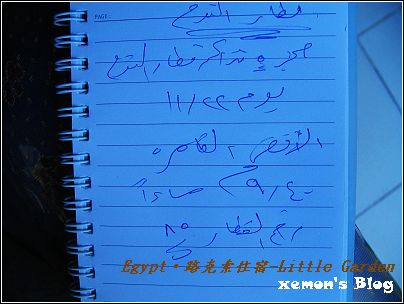 PAGE
قطار النوم
حجز ٥ تذاكر قطار النوم
يوم ١١/٢٢
الأقصر - القاهرة
٩,٤٠ مساءً
رقم القطار ٨٥
Egypt‧路克索住宿-Little Garden
xemon's Blog